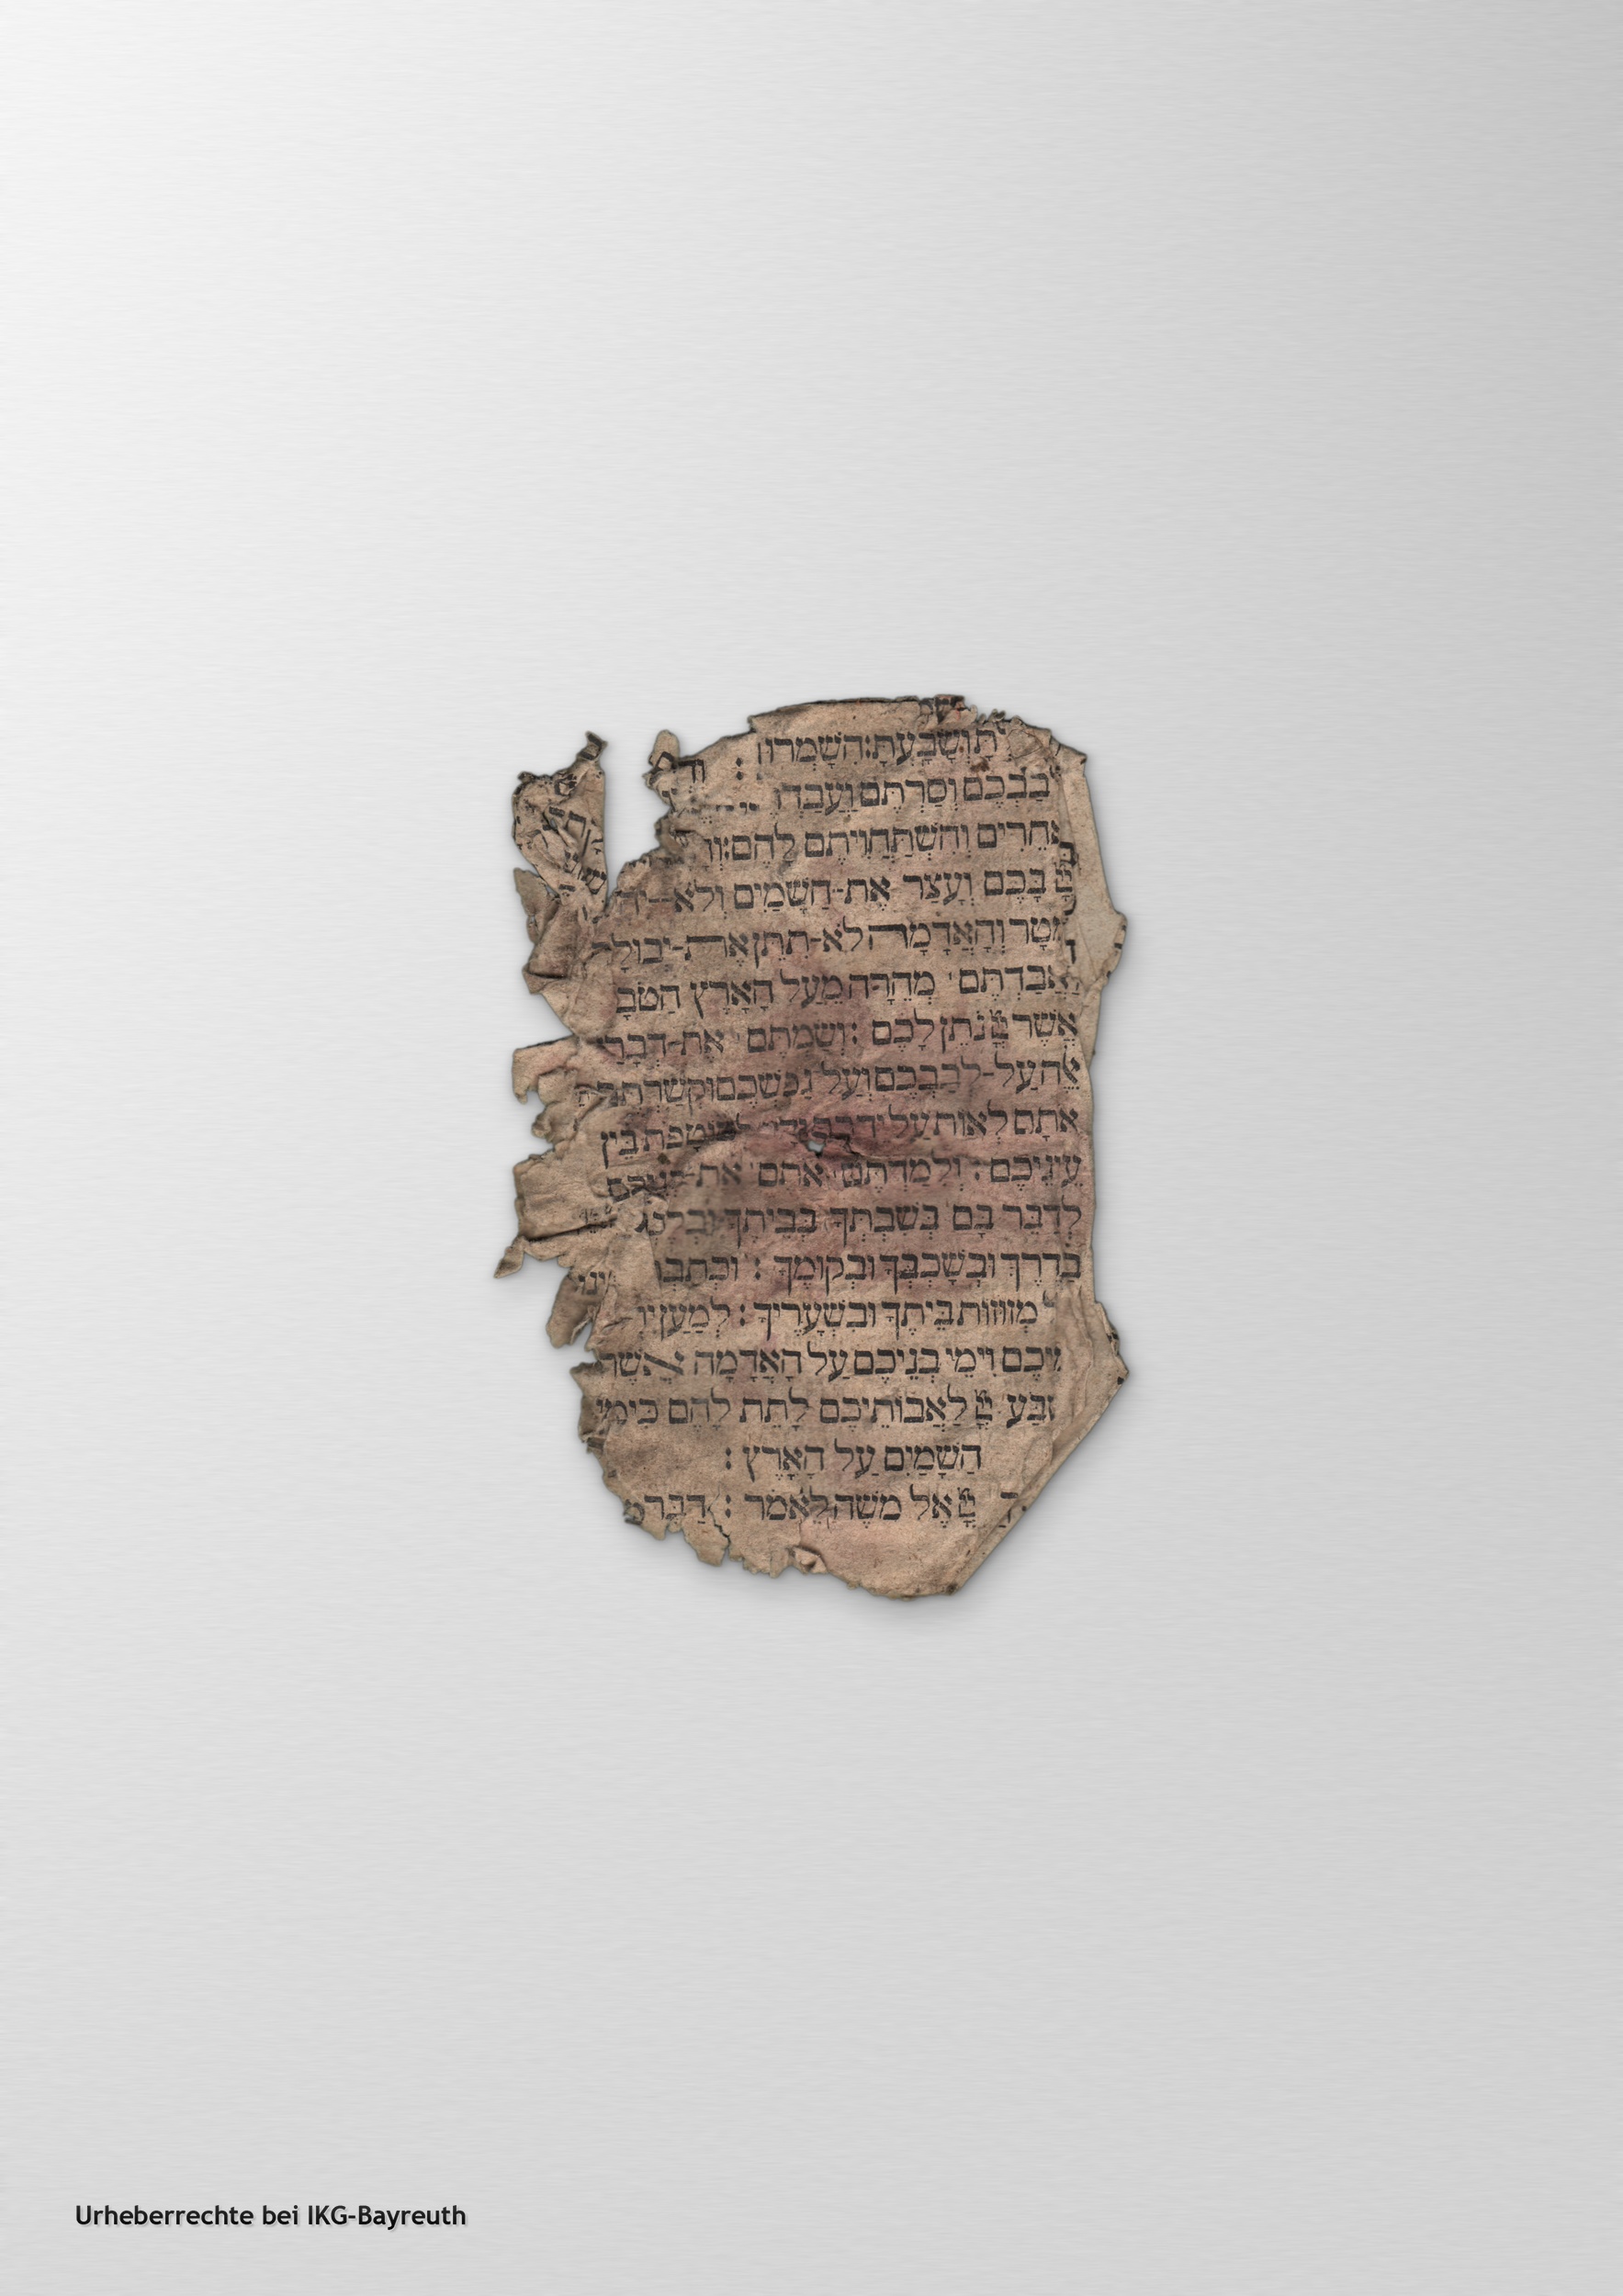 וְשָׂבָעְתָּ: הִשָּׁמְרוּ
לְבַבְכֶם וְסַרְתֶּם וַעֲבַדְ
אֲחֵרִים וְהִשְׁתַּחֲוִיתֶם לָהֶם:
בָּכֶם וְעָצַר אֶת-הַשָּׁמַיִם וְלֹא-
מָטָר וְהָאֲדָמָה לֹא-תִתֵּן אֶת-יְבוּלָ
וַאֲבַדְתֶּם מְהֵרָה מֵעַל הָאָרֶץ הַטֹּבָ
אֲשֶׁר יְיָ נֹתֵן לָכֶם: וְשַׂמְתֶּם אֶת-דְּבָרַי
אֵלֶּה עַל-לְבַבְכֶם וְעַל נַפְשְׁכֶם וּקְשַׁרְתֶּם
אֹתָם לְאוֹת עַל יֶדְכֶם לְטוֹטָפֹת בֵּין
עֵינֵיכֶם: וְלִמַּדְתֶּם אֹתָם אֶת-בְּנֵיכֶם
לְדַבֵּר בָּם בְּשִׁבְתְּךָ בְּבֵיתֶךָ
בַדֶּרֶךְ וּבְשָׁכְבְּךָ וּבְקוּמֶךָ: וּכְתַבְ
מְזוּזוֹת בֵּיתֶךָ וּבִשְׁעָרֶיךָ: לְמַעַן
וִימֵי בְנֵיכֶם עַל הָאֲדָמָה אֲשֶׁר
נִשְׁבַּע יְיָ לַאֲבוֹתֵיכֶם לָתֵת לָהֶם כִּימֵי
הַשָּׁמַיִם עַל הָאָרֶץ:
יְיָ אֶל מֹשֶׁה לֵּאמֹר: דַּבֵּר
Urheberrechte bei IKG-Bayreuth